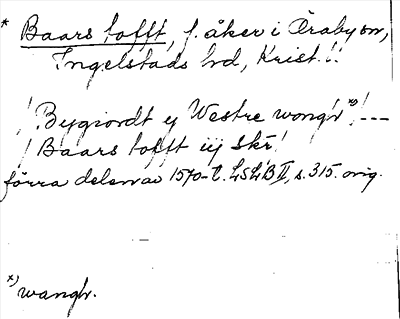 * Baars tofft, f. åker i Öraby sn,
Ingelstads hd, Krist. l.
/ Bygiordt ej Westre wongr *) / ---
/ Baars tofft iij Skr /
förra delen av 1570-t. LSLB II, s. 315. orig.
*) wangr.